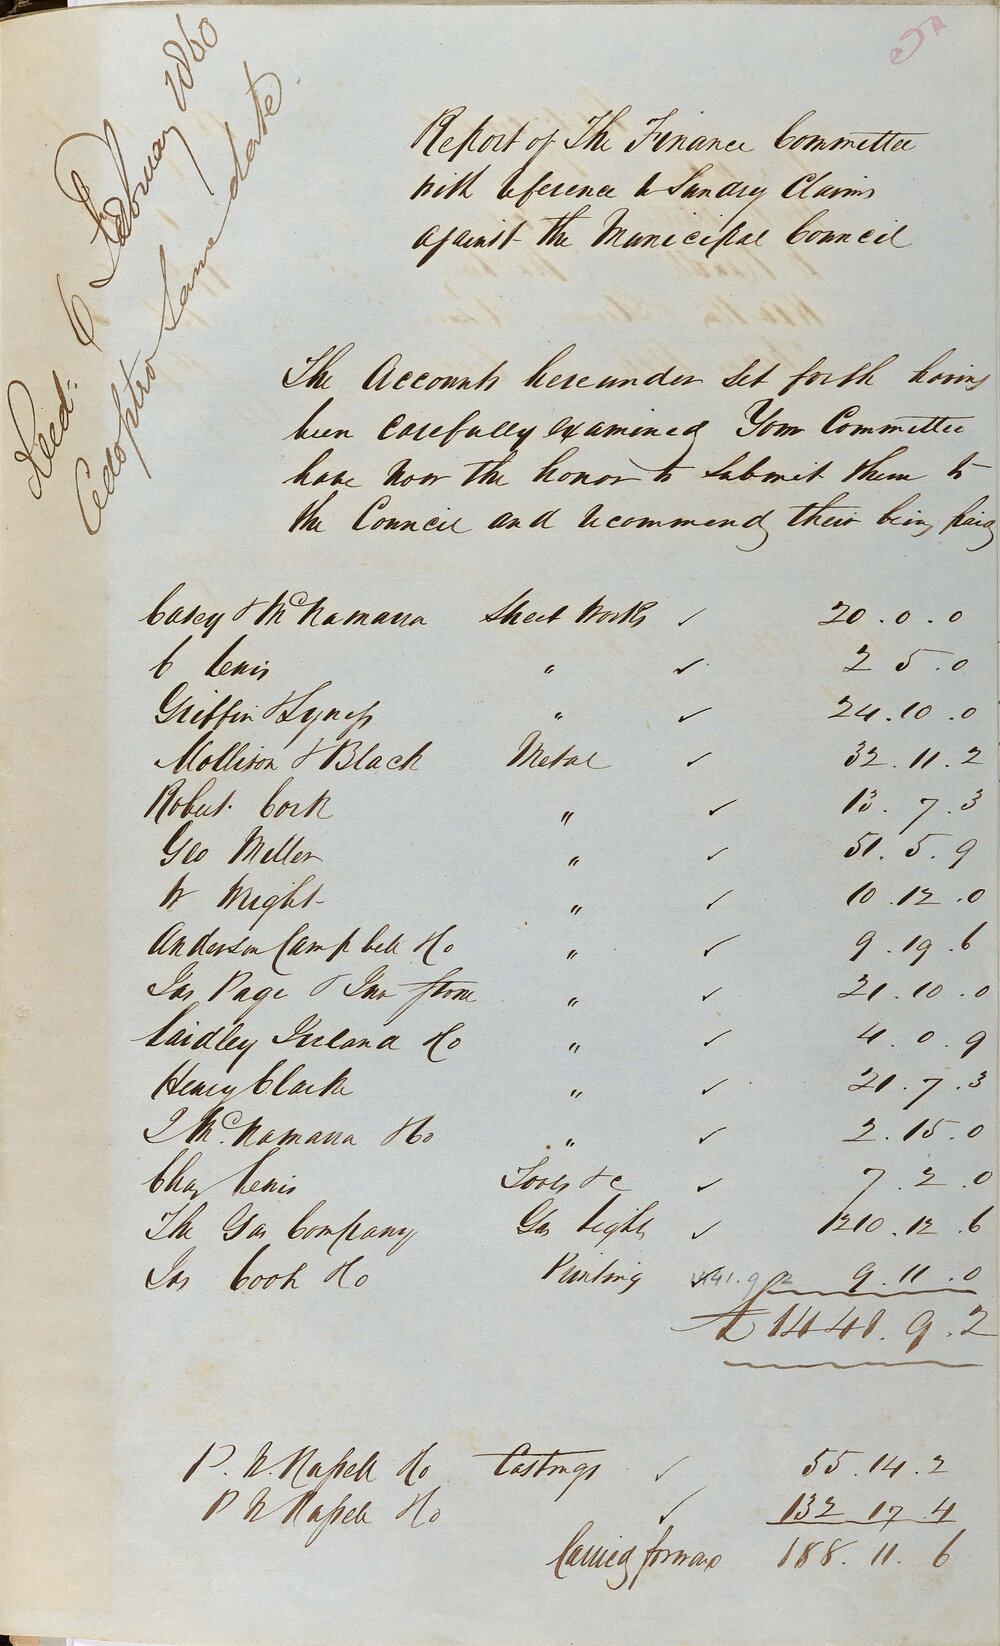 Recd: 6 February 1860
Adopted Same date.
Report of The Finance Committee
with reference to Sundry Claims
against the Municipal Council
The Accounts hereunder set forth having
been carefully examined Your Committee
have now the honor to submit them to
the Council and recommend their being paid
Casey & McNamara Street Works ✓ 20 . 0 . 0
C Lewis " ✓ 2 5 . 0
Griffin & Lynch " ✓ 24 . 10 . 0
Mollison & Black Metal ✓ 32 . 11 . 2
Robert Cork " ✓ 13 . 7 . 3
Geo Miller " ✓ 51 . 5 . 9
W Wright " ✓ 10 . 12 . 0
Anderson Campbell & Co " ✓ 9 . 19 . 6
Jas Page & Jno Stone " ✓ 21 . 10 . 0
Laidley Ireland & Co " ✓ 4 . 0 . 9
Henry Clarke " ✓ 21 . 7 . 3
McNamara & Co " ✓ 2 . 15 . 0
Chas Lewis Tools &c ✓ 7 . 2 . 0
The Gas Company Gas Lights ✓ 1210 . 12 . 6
Jas Cook & Co Printing ✓ 9 . 11 . 0
£ 1441 . 9 . 2
P. N. Russell & Co Castings ✓ 55 . 14 . 2
P N Russell & Co ✓ 132 17 . 4
Carried forward 188 . 11 . 6